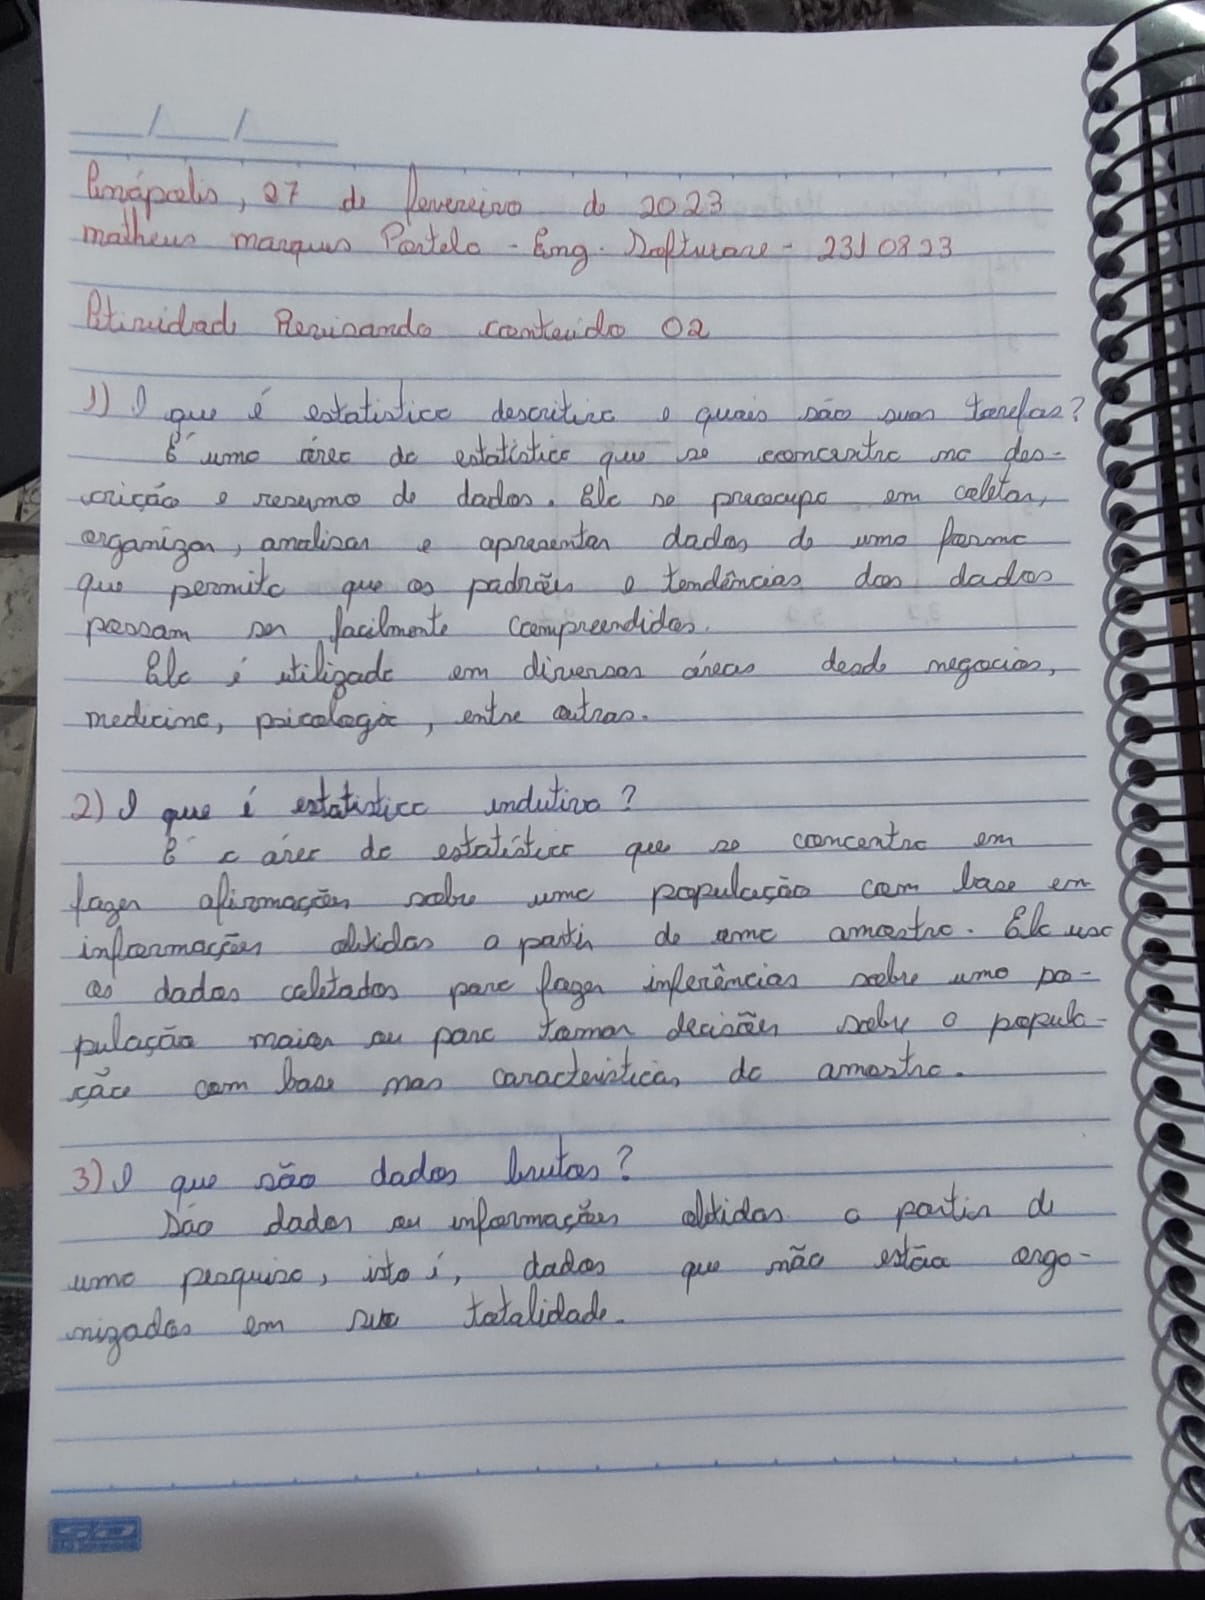 ___/___/___
Anápolis, 27 de fevereiro de 2023
Matheus Marques Portela - Eng. Software - 2310823
Atividade Revisando conteúdo 02
1) O que é estatística descritiva e quais são suas tarefas?
É uma área da estatística que se concentra na des-
crição e resumo de dados. Ela se preocupa em coletar,
organizar, analisar e apresentar dados de uma forma
que permita que os padrões e tendências dos dados
possam ser facilmente compreendidas.
Ela é utilizada em diversas áreas desde negocios,
medicina, psicologia, entre outras.
2) O que é estatística indutiva?
É a área da estatística que se concentra em
fazer afirmações sobre uma população com base em
informações obtidas a partir de uma amostra. Ela usa
os dados coletados para fazer inferências sobre uma po-
pulação maior ou para tomar decisões sobre a popula-
ção com base nas características da amostra.
3) O que são dados brutos?
São dados ou informações obtidas a partir de
uma pesquisa, isto é, dados que não estão orga-
nizados em sua totalidade.